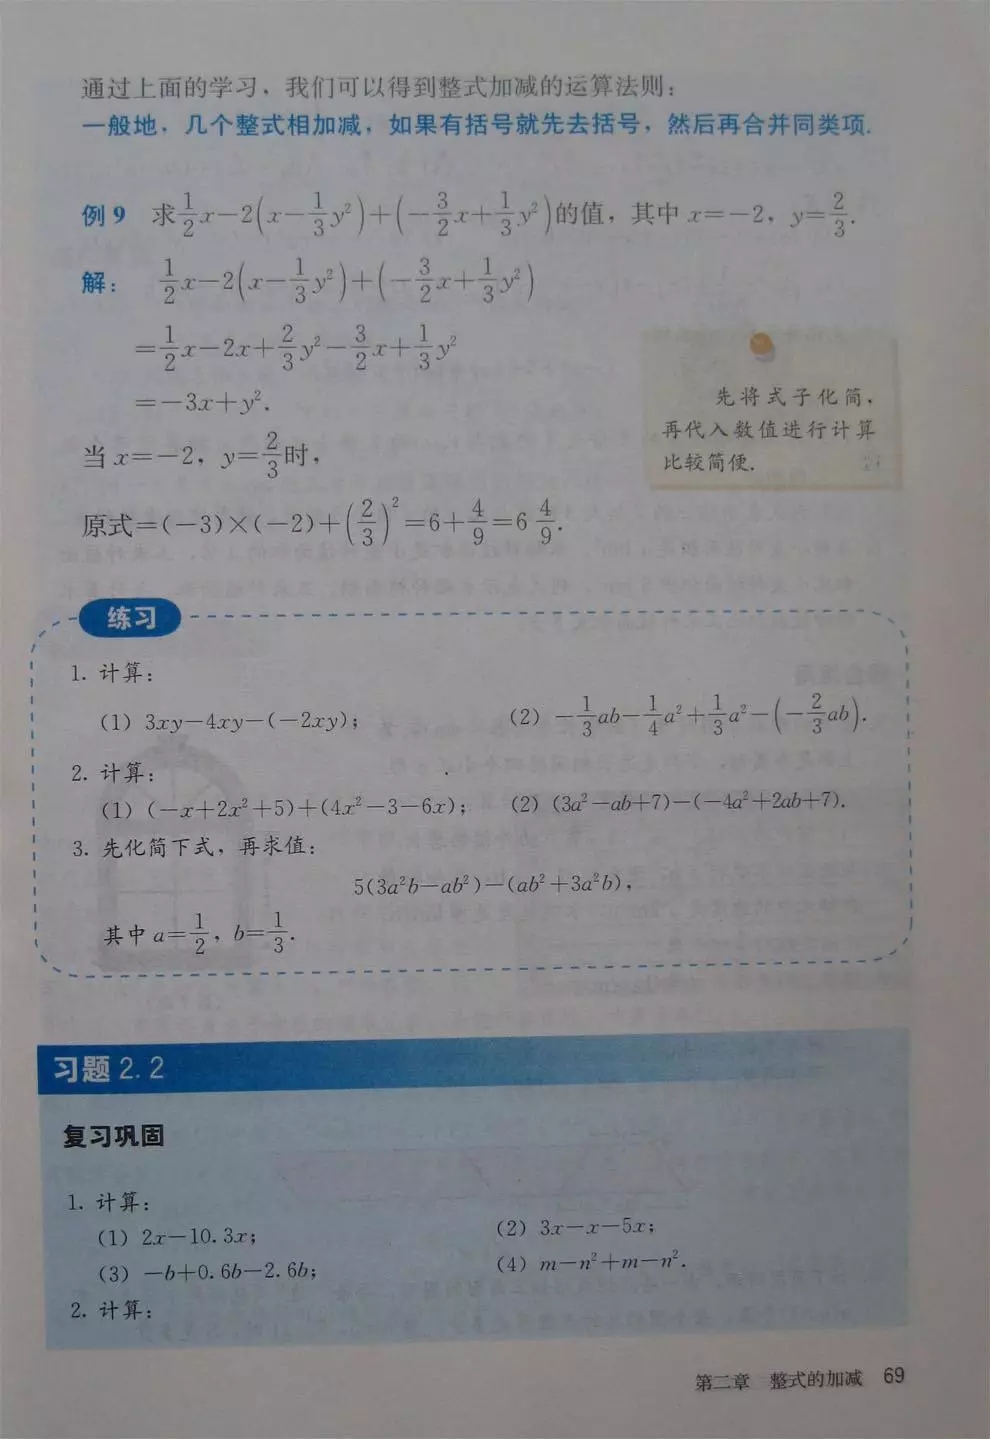 通过上面的学习，我们可以得到整式加减的运算法则：
一般地，几个整式相加减，如果有括号就先去括号，然后再合并同类项.
例9 求\frac{1}{2}x-2(x-\frac{1}{3}y²)+(-\frac{3}{2}x+\frac{1}{3}y²)的值，其中 x=-2，y=\frac{2}{3}.
解： \frac{1}{2}x-2(x-\frac{1}{3}y²)+(-\frac{3}{2}x+\frac{1}{3}y²)
=\frac{1}{2}x-2x+\frac{2}{3}y²-\frac{3}{2}x+\frac{1}{3}y²
=-3x+y².
当 x=-2，y=\frac{2}{3}时，
原式=(-3)×(-2)+(\frac{2}{3})²=6+\frac{4}{9}=6\frac{4}{9}.
先将式子化简，
再代入数值进行计算
比较简便.
练习
1. 计算：
(1) 3xy-4xy-(-2xy)； (2) -\frac{1}{3}ab-\frac{1}{4}a²+\frac{1}{3}a²-(-\frac{2}{3}ab).
2. 计算：
(1) (-x+2x²+5)+(4x²-3-6x)； (2) (3a²-ab+7)-(-4a²+2ab+7).
3. 先化简下式，再求值：
5(3a²b-ab²)-(ab²+3a²b)，
其中 a=\frac{1}{2}，b=\frac{1}{3}.
习题 2.2
复习巩固
1. 计算：
(1) 2x-10.3x； (2) 3x-x-5x；
(3) -b+0.6b-2.6b； (4) m-n²+m-n².
2. 计算：
第二章 整式的加减 69